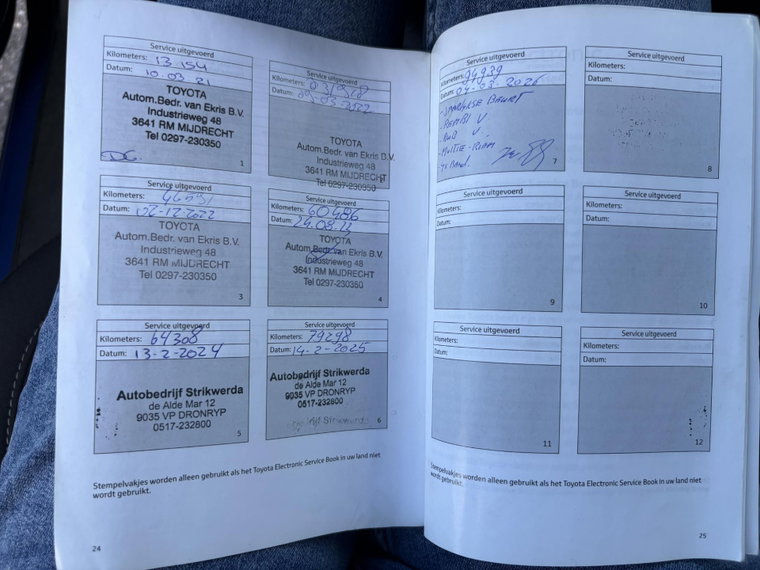 Service uitgevoerd
Kilometers: 13 154
Datum: 10.03.21
TOYOTA
Autom.Bedr. van Ekris B.V.
Industrieweg 48
3641 RM MIJDRECHT
Tel 0297-230350
1
Service uitgevoerd
Kilometers:
Datum:
TOYOTA
Autom.Bedr. van Ekris B.V.
Industrieweg 48
3641 RM MIJDRECHT
Tel 0297-230350
Service uitgevoerd
Kilometers:
Datum: 02-12-2022
TOYOTA
Autom.Bedr. van Ekris B.V.
Industrieweg 48
3641 RM MIJDRECHT
Tel 0297-230350
3
Service uitgevoerd
Kilometers: 60486
Datum:
TOYOTA
Autom.Bedr. van Ekris B.V.
Industrieweg 48
3641 RM MIJDRECHT
Tel 0297-230350
4
Service uitgevoerd
Kilometers: 64308
Datum: 13-2-2024
Autobedrijf Strikwerda
de Alde Mar 12
9035 VP DRONRYP
0517-232800
5
Service uitgevoerd
Kilometers: 79298
Datum: 14-2-2025
Autobedrijf Strikwerda
de Alde Mar 12
9035 VP DRONRYP
0517-232800
Strikwerda
6
Stempelvakjes worden alleen gebruikt als het Toyota Electronic Service Book in uw land niet
wordt gebruikt.
24
Service uitgevoerd
Kilometers: 94939
Datum: 04.03.2026
7
Service uitgevoerd
Kilometers:
Datum:
8
Service uitgevoerd
Kilometers:
Datum:
9
Service uitgevoerd
Kilometers:
Datum:
10
Service uitgevoerd
Kilometers:
Datum:
11
Service uitgevoerd
Kilometers:
Datum:
12
Stempelvakjes worden alleen gebruikt als het Toyota Electronic Service Book in uw land niet
wordt gebruikt.
25